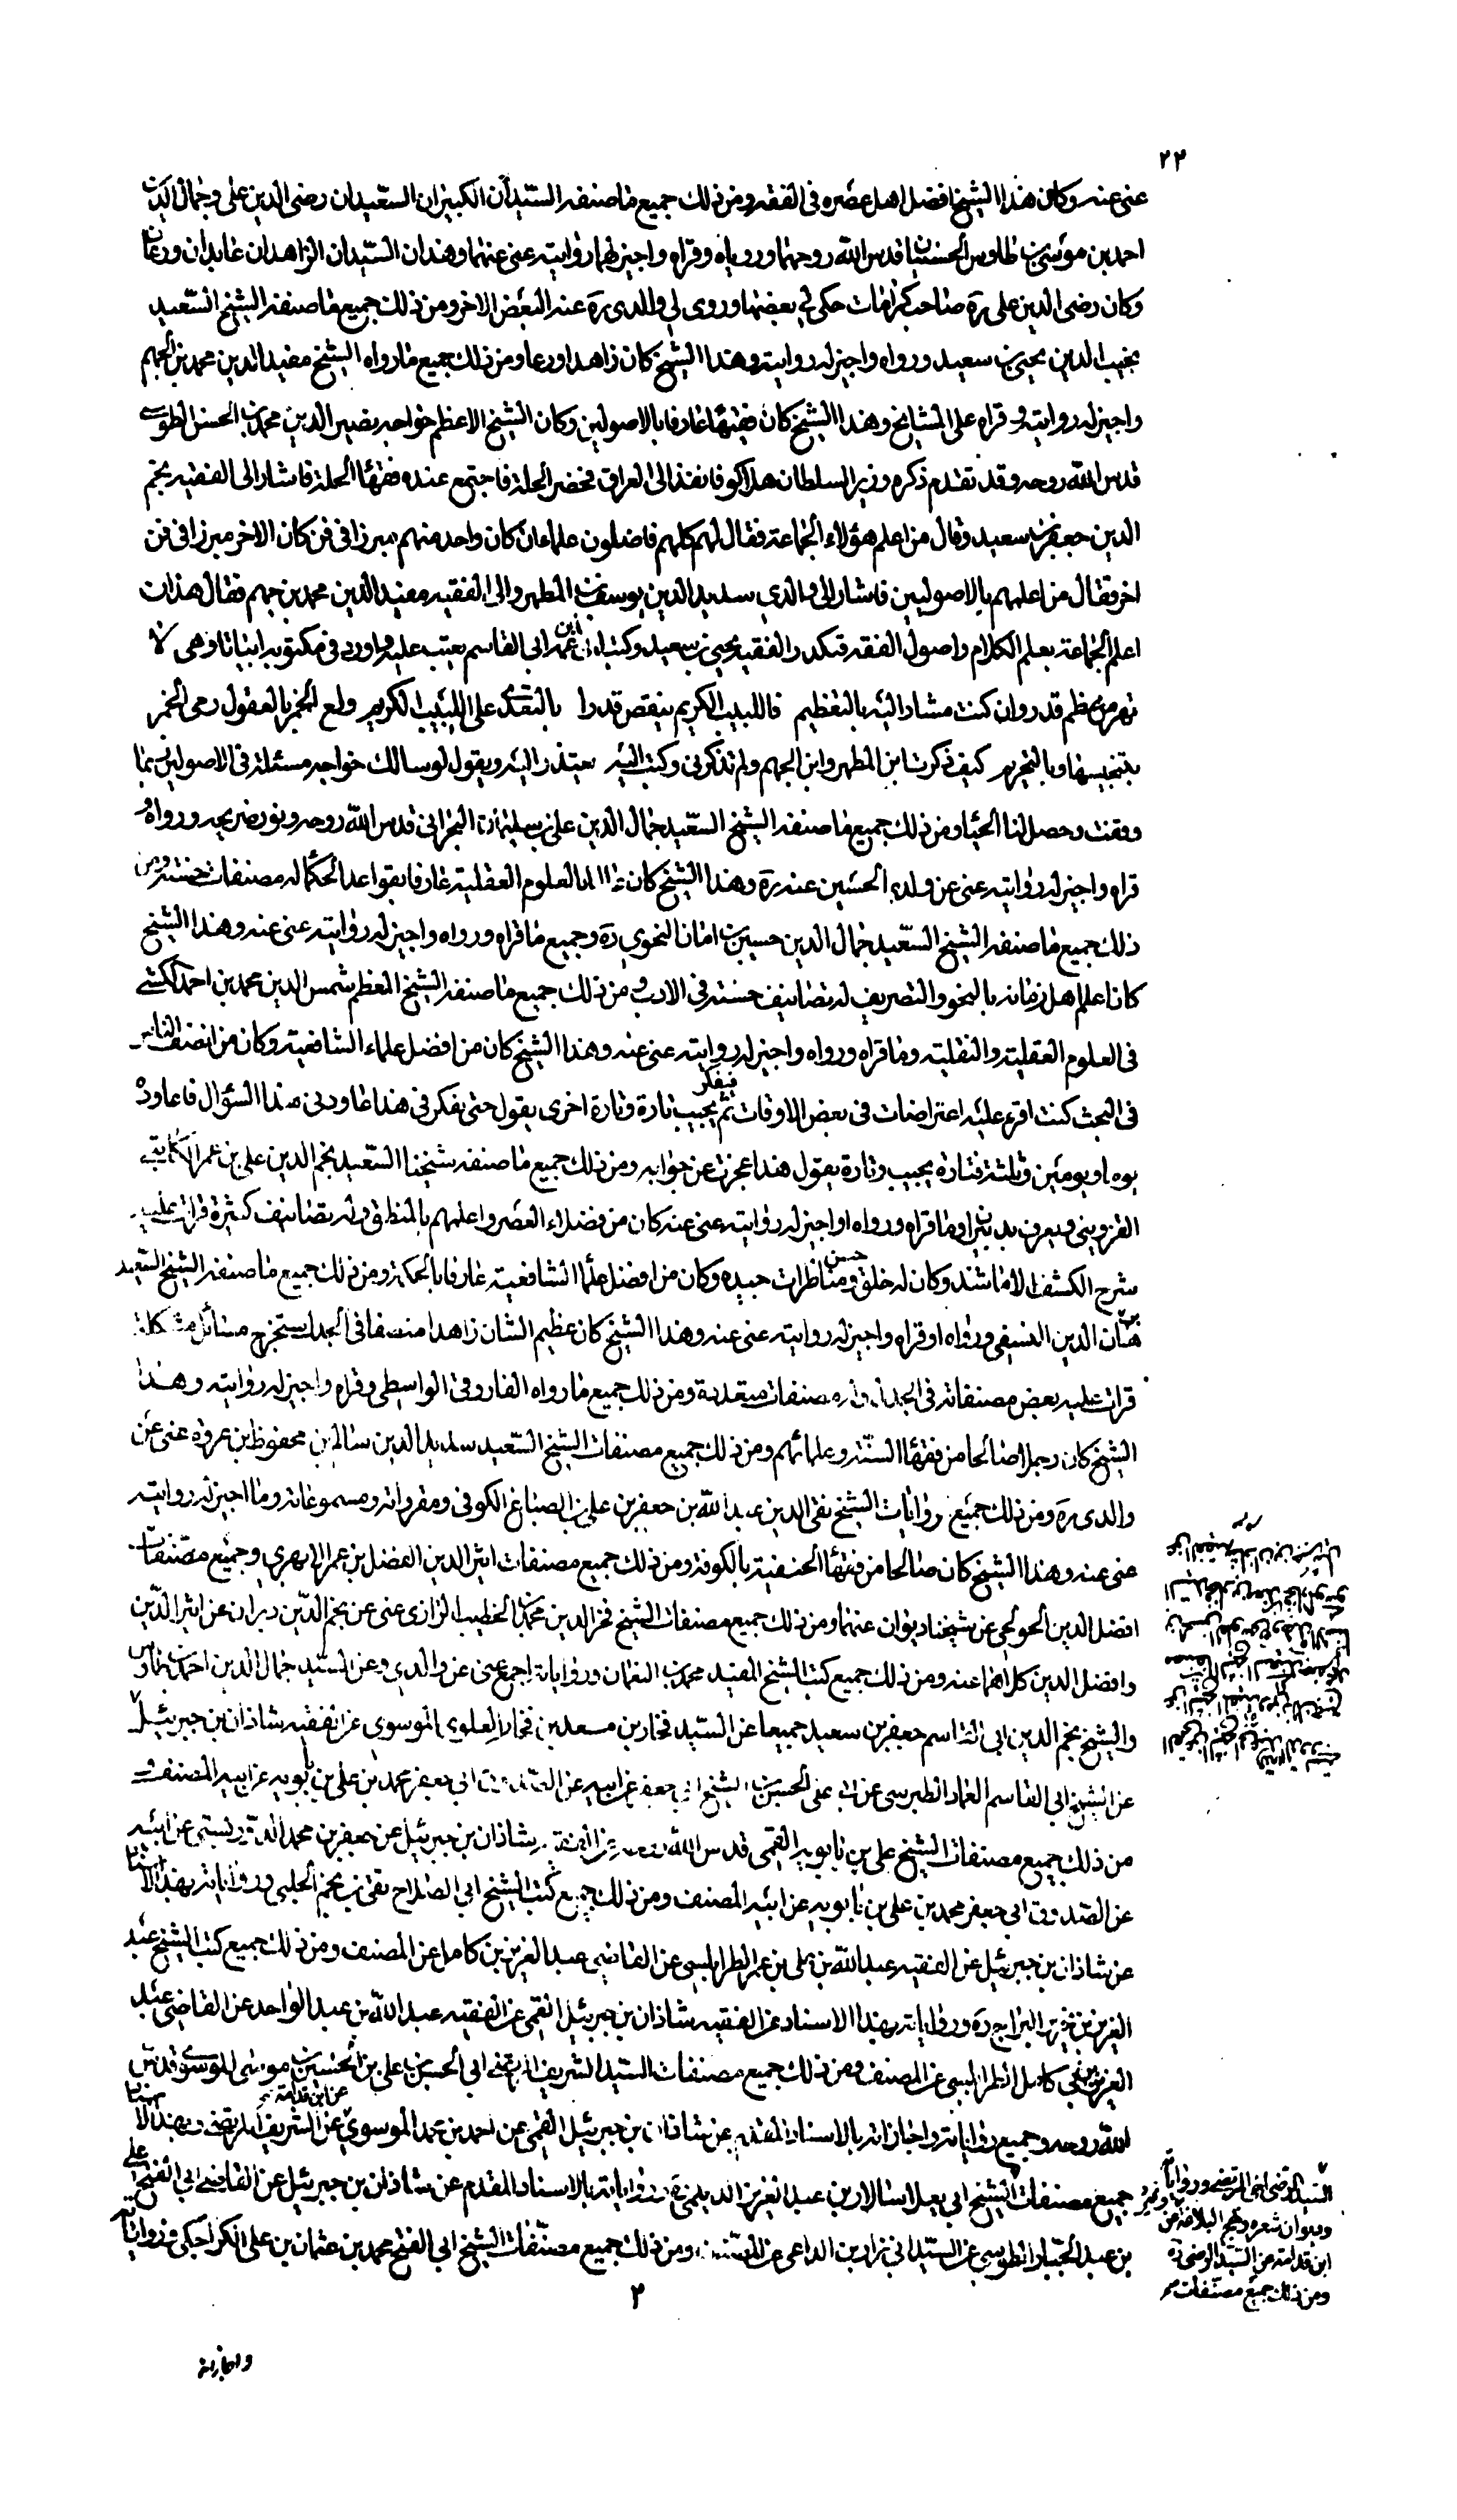 ٢٢
عنی عنه وكان هذا الشيخ افضل اهل عصره فی الفقه ومن ذلك جميع ما صنفه السيدان الكبيران السعيدان رضی الدين علی وجمال الدين
احمد بن موسی بن طاوس الحسنيان قدس الله روحهما وروياه وقراه واجيز لهما روايته عنی عنهما وهذان السيدان الزاهدان عابدان ورعان
وكان رضی الدين علی ره صاحب كرامات حكی لی بعضها وروی لی والدی ره عنه البعض الاخر ومن ذلك جميع ما صنفه الشيخ السعيد
نجيب الدين يحيی بن سعيد ورواه واجيز له روايته وهذا الشيخ كان زاهدا ورعا ومن ذلك جميع ما رواه الشيخ مفيد الدين محمد بن الجهم
واجيز له روايته وقراه علی المشايخ وهذا الشيخ كان فقيها عارفا بالاصولين وكان الشيخ الاعظم خواجه نصير الدين محمد بن الحسن الطوسی
قدس الله روحه وقد تقدم ذكره وزير السلطان هلاكو فانفذ الی العراق فحضر الحلة فاجتمع عنده فقهاء الحلة فاشار الی الفقيه نجم
الدين جعفر بن سعيد وقال من اعلم هؤلاء الجماعة فقال لهم كلهم فاضلون علماء ان كان واحد منهم مبرزا فی فن كان الاخر مبرزا فی فن
اخر فقال من اعلمهم بالاصولين فاشار الی والدی سديد الدين يوسف بن المطهر والی الفقيه مفيد الدين محمد بن جهم فقال هذان
اعلم الجماعة بعلم الكلام واصول الفقه فتكدر الفقيه يحيی بن سعيد وكتب الی ابن عمه ابی القاسم يعتب عليه واورد فی مكتوبه ابياتا وهی لا
تهن من عظيم قدر وان كنت مشارا اليه بالتعظيم فاللبيب الكريم ينقص قدرا بالتعدی علی اللبيب الكريم ولع الخمر بالعقول رمی الخمر
بتنجيسها وبالتحريم كيف ذكرت ابن المطهر وابن الجهم ولم تذكرنی وكتب اليه يعتذر اليه ويقول لو سالك خواجه مسئلة فی الاصولين ربما
وقفت وحصل لنا الحياء ومن ذلك جميع ما صنفه الشيخ السعيد جمال الدين علی بن سليمان البحرانی قدس الله روحه ونور ضريحه ورواه و
قراه واجيز له روايته عنی عن ولده الحسين عنه ره وهذا الشيخ كان عالما بالعلوم العقلية عارفا بقواعد الحكما له مصنفات حسنة ومن
ذلك جميع ما صنفه الشيخ السعيد جمال الدين حسين بن امان النحوی ره وجميع ما قراه ورواه واجيز له روايته عنی عنه وهذا الشيخ
كان اعلم اهل زمانه بالنحو والتصريف له تصانيف حسنة فی الادب ومن ذلك جميع ما صنفه الشيخ المعظم شمس الدين محمد بن احمد الكشی
فی العلوم العقلية والنقلية وما قراه ورواه واجيز له روايته عنی عنه وهذا الشيخ كان من افضل علماء الشافعية وكان من انصف الناس
فی البحث كنت اقرء عليه اعترضات فی بعض الاوقات فيفكر ثم يجيب تارة وتارة اخری يقول حتی نفكر فی هذا عاودنی هذا السؤال فاعاوده
يوما او يومين وثلثة فتارة يجيب وتارة يقول هذا عجزت عن جوابه ومن ذلك جميع ما صنفه شيخنا السعيد نجم الدين علی بن عمر الكاتبی
القزوينی ويعرف بدبيران وما قراه ورواه او اجيز له روايته عنی عنه كان من فضلاء العصر واعلمهم بالمنطق وله تصانيف كثيرة قرات عليه
شرح الكشف الا ما شذ وكان له خلق حسن ومناظرات جيده وكان من افضل علما الشافعية عارفا بالحكمة ومن ذلك جميع ما صنفه الشيخ السعيد
برهان الدين النسفی ورواه او قراه واجيز له روايته عنی عنه وهذا الشيخ كان عظيم الشان زاهدا مصنفا فی الجدل استخرج مسائل مشكلة
قرات عليه بعض مصنفاته فی الجدل وله مصنفات متعددة ومن ذلك جميع ما رواه الفاروقی الواسطی وقراه واجيز له روايته وهذا
الشيخ كان رجلا صالحا من فقهاء السنة وعلمائهم ومن ذلك جميع مصنفات الشيخ السعيد سديد الدين سالم بن محفوظ بن عزوه عنی عن
والدی ره ومن ذلك جميع روايات الشيخ تقی الدين عبد الله بن جعفر بن علی بن الصباغ الكوفی ومقرواته ومسموعاته وما اجيز له روايته
عنی عنه وهذا الشيخ كان صالحا من فقهاء الحنفية بالكوفة ومن ذلك جميع مصنفات اثير الدين الفضل بن عمر الابهری وجميع مصنفات
افضل الدين الخونجی عن شيخنا دبيران عنهما ومن ذلك جميع مصنفات الشيخ فخر الدين محمد بن الخطيب الرازی عنی عن نجم الدين دبيران عن اثير الدين
وافضل الدين كلاهما عنه ومن ذلك جميع كتب الشيخ المفيد محمد بن النعمان ورواياته اجمع عنی عن والدی وعن السيد جمال الدين احمد بن طاوس
والشيخ نجم الدين ابی القاسم جعفر بن سعيد جميعا عن السيد فخار بن معد بن فخار العلوی الموسوی عن الفقيه شاذان بن جبرئيل
عن الشيخ ابی القاسم العماد الطبرسی عن ابی علی الحسن بن الشيخ ابی جعفر عن ابيه عن الصدوق ابی جعفر محمد بن علی بن بابويه عن ابيه المصنف و
من ذلك جميع مصنفات الشيخ علی بن بابويه القمی قدس الله شاذان بن جبرئيل عن جعفر بن محمد الدوريستی عن ابيه
عن الصدوق ابی جعفر محمد بن علی بن بابويه عن ابيه المصنف ومن ذلك جميع كتب الشيخ ابی الصلاح تقی بن نجم الحلبی ورواياته بهذا الاسناد
عن شاذان بن جبرئيل عن الفقيه عبد الله بن عمر الطرابلسی عن القاضی عبد العزيز بن كامل عن المصنف ومن ذلك جميع كتب الشيخ عبد
العزيز بن نحرير البراج ره ورواياته بهذا الاسناد عن الفقيه شاذان بن جبرئيل القمی عن الفقيه عبد الله بن عبد الواحد عن القاضی عبد
العزيز بن ابی كامل الطرابلسی عن المصنف ومن ذلك جميع مصنفات السيد الشريف المرتضی ابی الحسين علی بن الحسين موسی الموسوی قدس
الله روحه وجميع رواياته واجازاته بالاسناد المقدم عن شاذان بن جبرئيل القمی عن احمد بن محمد الموسوی عن ابن قدامة عن الشريف المرتضی وبهذا الاسناد
جميع مصنفات الشيخ ابی يعلا سالار بن عبد العزيز الديلمی ره ورواياته بالاسناد المقدم عن شاذان بن جبرئيل عن القاضی ابی الفتح علی
بن عبد الجبار الطوسی عن السيد ابی نزار بن الداعی عن المصنف ومن ذلك جميع مصنفات الشيخ ابی الفتح محمد بن عثمان بن علی الكراجكی ورواياته
السيد الرضی اخی المرتضی ورواياته
وديوان شعره ونهج البلاغة عن
ابن قدامة عن السيد الرضی ره
ومن ذلك جميع مصنفات
٢
واجازاته